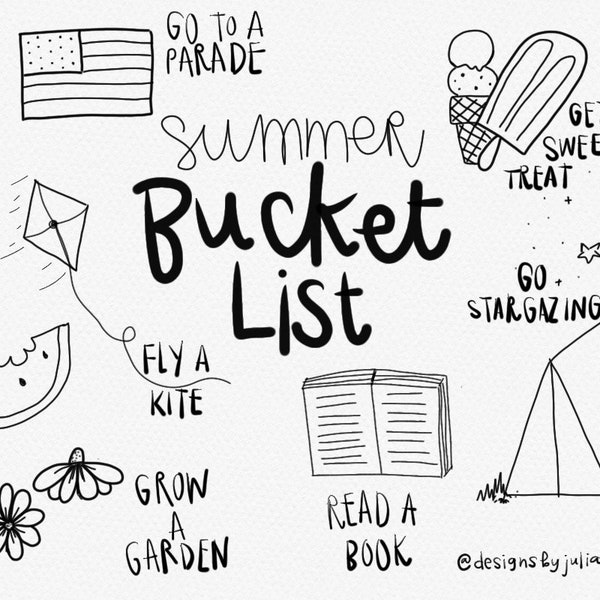 GO TO A
PARADE
summer
Bucket
List
GET
SWEE
TREAT
GO
STARGAZING
FLY A
KITE
GROW
A
GARDEN
READ A
BOOK
@designsbyjulia